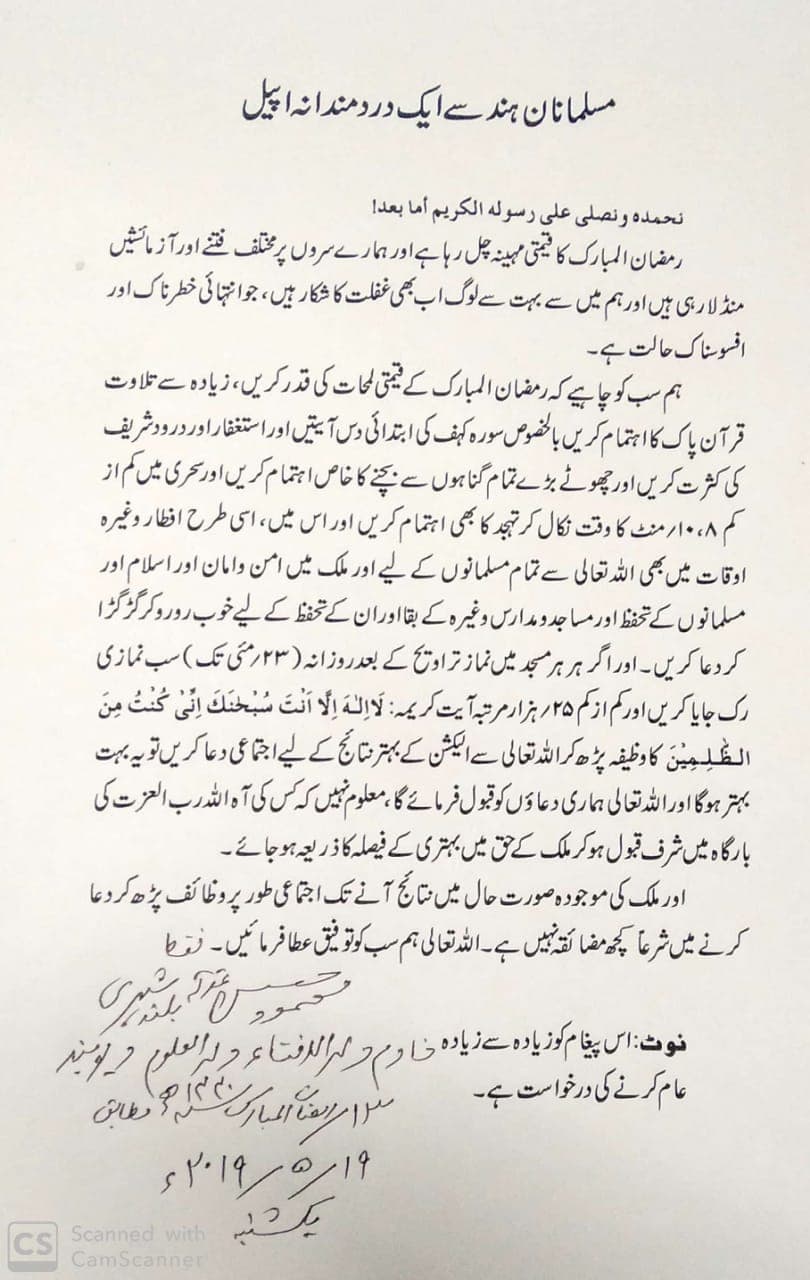 مسلمانان ہند سے ایک دردمندانہ اپیل
نحمدہ ونصلی علی رسولہ الکریم أما بعد!
رمضان المبارک کا قیمتی مہینہ چل رہا ہے اور ہمارے سروں پر مختلف فتنے اور آزمائشیں
منڈلا رہی ہیں اور ہم میں سے بہت سے لوگ اب بھی غفلت کا شکار ہیں، جو انتہائی خطرناک اور
افسوسناک حالت ہے۔
ہم سب کو چاہیے کہ رمضان المبارک کے قیمتی لمحات کی قدر کریں، زیادہ سے تلاوت
قرآن پاک کا اہتمام کریں بالخصوص سورہ کہف کی ابتدائی دس آیتیں اور استغفار اور درود شریف
کی کثرت کریں اور چھوٹے بڑے تمام گناہوں سے بچنے کا خاص اہتمام کریں اور سحری میں کم از
کم ۸، ۱۰/ منٹ کا وقت نکال کر تہجد کا بھی اہتمام کریں اور اس میں، اسی طرح افطار وغیرہ
اوقات میں بھی اللہ تعالی سے تمام مسلمانوں کے لیے اور ملک میں امن وامان اور اسلام اور
مسلمانوں کے تحفظ اور مساجد ومدارس وغیرہ کے بقا اور ان کے تحفظ کے لیے خوب رو رو کر گڑ گڑا
کر دعا کریں۔ اور اگر ہر ہر مسجد میں نماز تراویح کے بعد روزانہ (۲۳/ مئی تک) سب نمازی
رک جایا کریں اور کم از کم ۲۵/ ہزار مرتبہ آیت کریمہ: لَا اِلٰهَ اِلَّا اَنْتَ سُبْحٰنَكَ اِنِّیْ كُنْتُ مِنَ
الظّٰلِمِیْنَ کا وظیفہ پڑھ کر اللہ تعالی سے الیکشن کے بہتر نتائج کے لیے اجتماعی دعا کریں تو یہ بہت
بہتر ہوگا اور اللہ تعالی ہماری دعاؤں کو قبول فرمائے گا، معلوم نہیں کہ کس کی آہ اللہ رب العزت کی
بارگاہ میں شرف قبول ہو کر ملک کے حق میں بہتری کے فیصلہ کا ذریعہ ہو جائے۔
اور ملک کی موجودہ صورت حال میں نتائج آنے تک اجتماعی طور پر وظائف پڑھ کر دعا
کرنے میں شرعاً کچھ مضائقہ نہیں ہے۔ اللہ تعالی ہم سب کو توفیق عطا فرمائیں۔ فقط
محمود حسن غفرلہ بلند شہری
خادم دار الافتاء دار العلوم دیوبند
نوٹ: اس پیغام کو زیادہ سے زیادہ
عام کرنے کی درخواست ہے۔
۱۳/ رمضان المبارک ۱۴۴۰ھ مطابق
۱۹/ ۵/ ۲۰۱۹ء
یکشنبہ
CS Scanned with
CamScanner